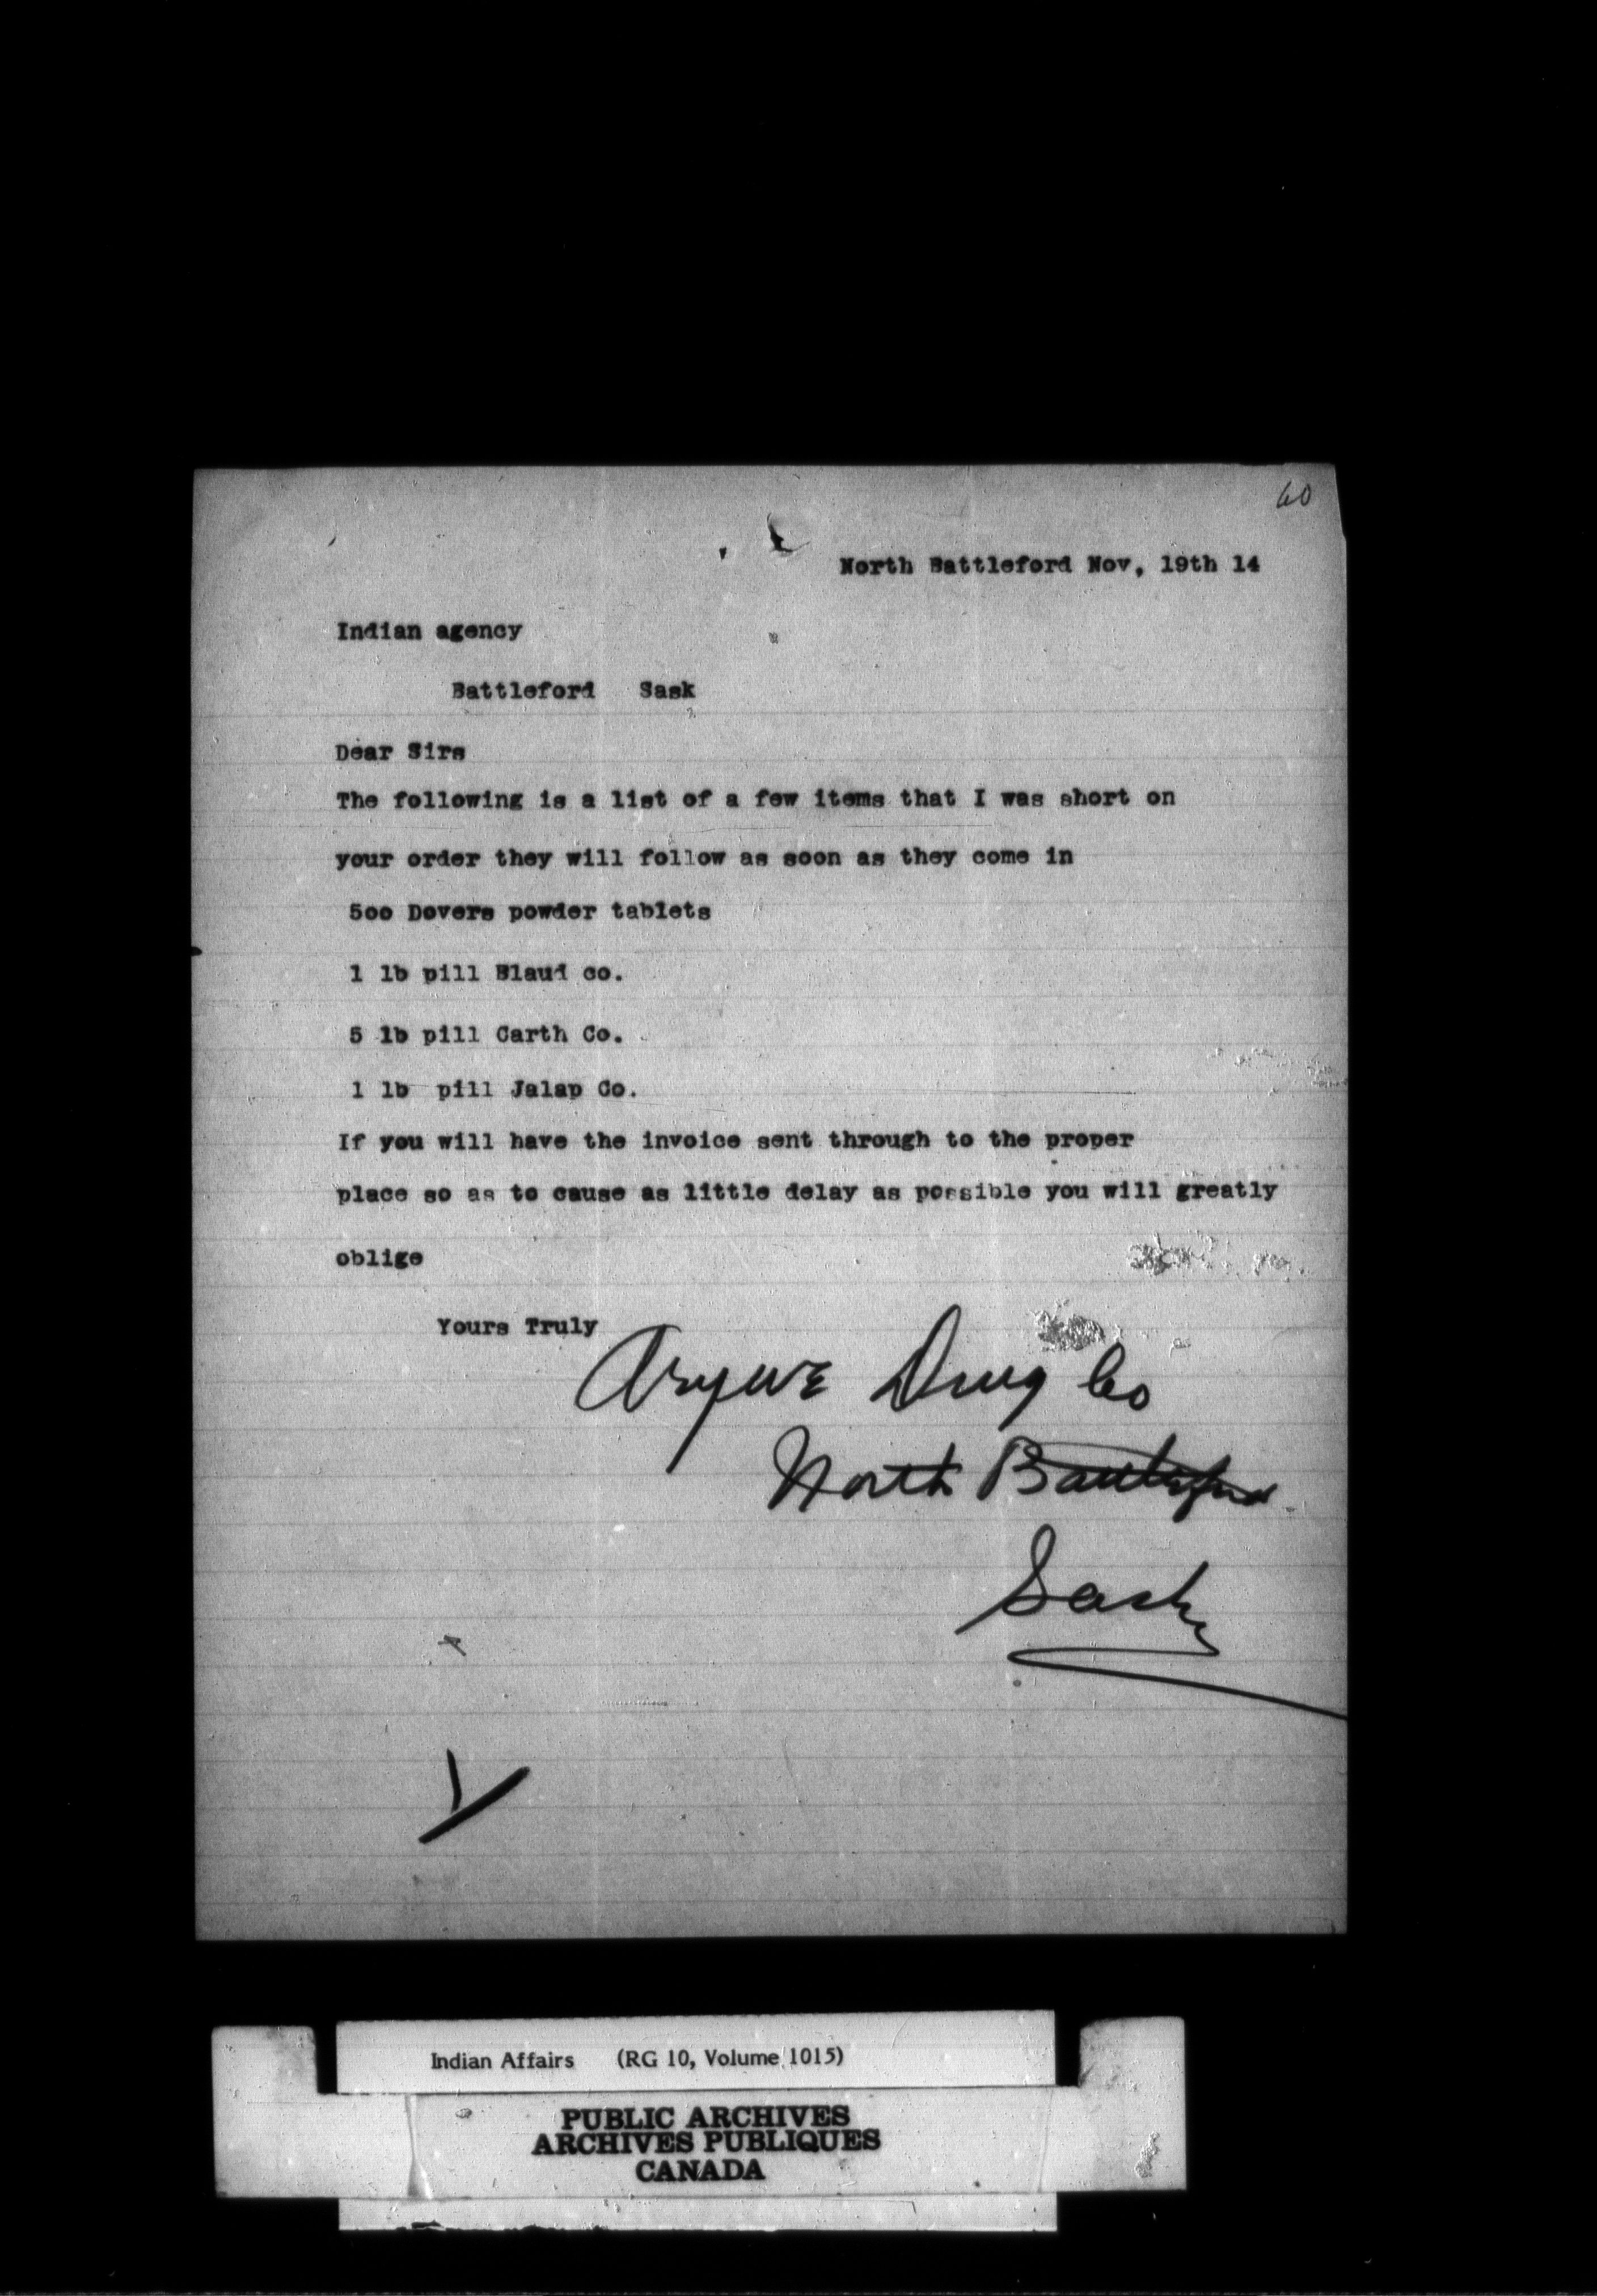 60
North Battleford Nov, 19th 14
Indian agency
Battleford Sask
Dear Sirs
The following is a list of a few items that I was short on
your order they will follow as soon as they come in
500 Dovers powder tablets
1 lb pill Blaud co.
5 lb pill Carth Co.
1 lb pill Jalap Co.
If you will have the invoice sent through to the proper
place so as to cause as little delay as possible you will greatly
oblige
Yours Truly
Drug Co
North Battleford
Sask
Indian Affairs (RG 10, Volume 1015)
PUBLIC ARCHIVES
ARCHIVES PUBLIQUES
CANADA